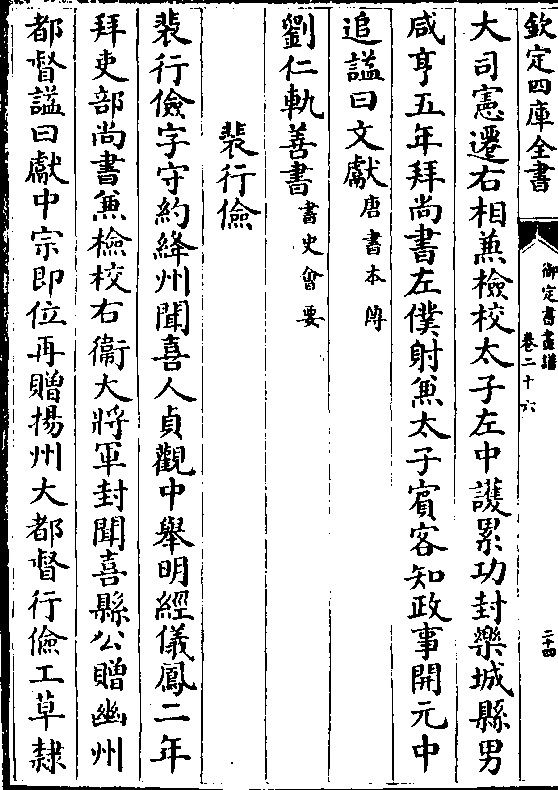 欽定四庫全書
御定書畫譜
卷二十六
二十四
大司憲遷右相兼檢校太子左中護累功封樂城縣男
咸亨五年拜尚書左僕射兼太子賓客知政事開元中
追諡曰文獻唐書本傳
劉仁軌善書書史會要
裴行儉
裴行儉字守約絳州聞喜人貞觀中舉明經儀鳳二年
拜吏部尚書兼檢校右衞大將軍封聞喜縣公贈幽州
都督諡曰獻中宗即位再贈揚州大都督行儉工草隸